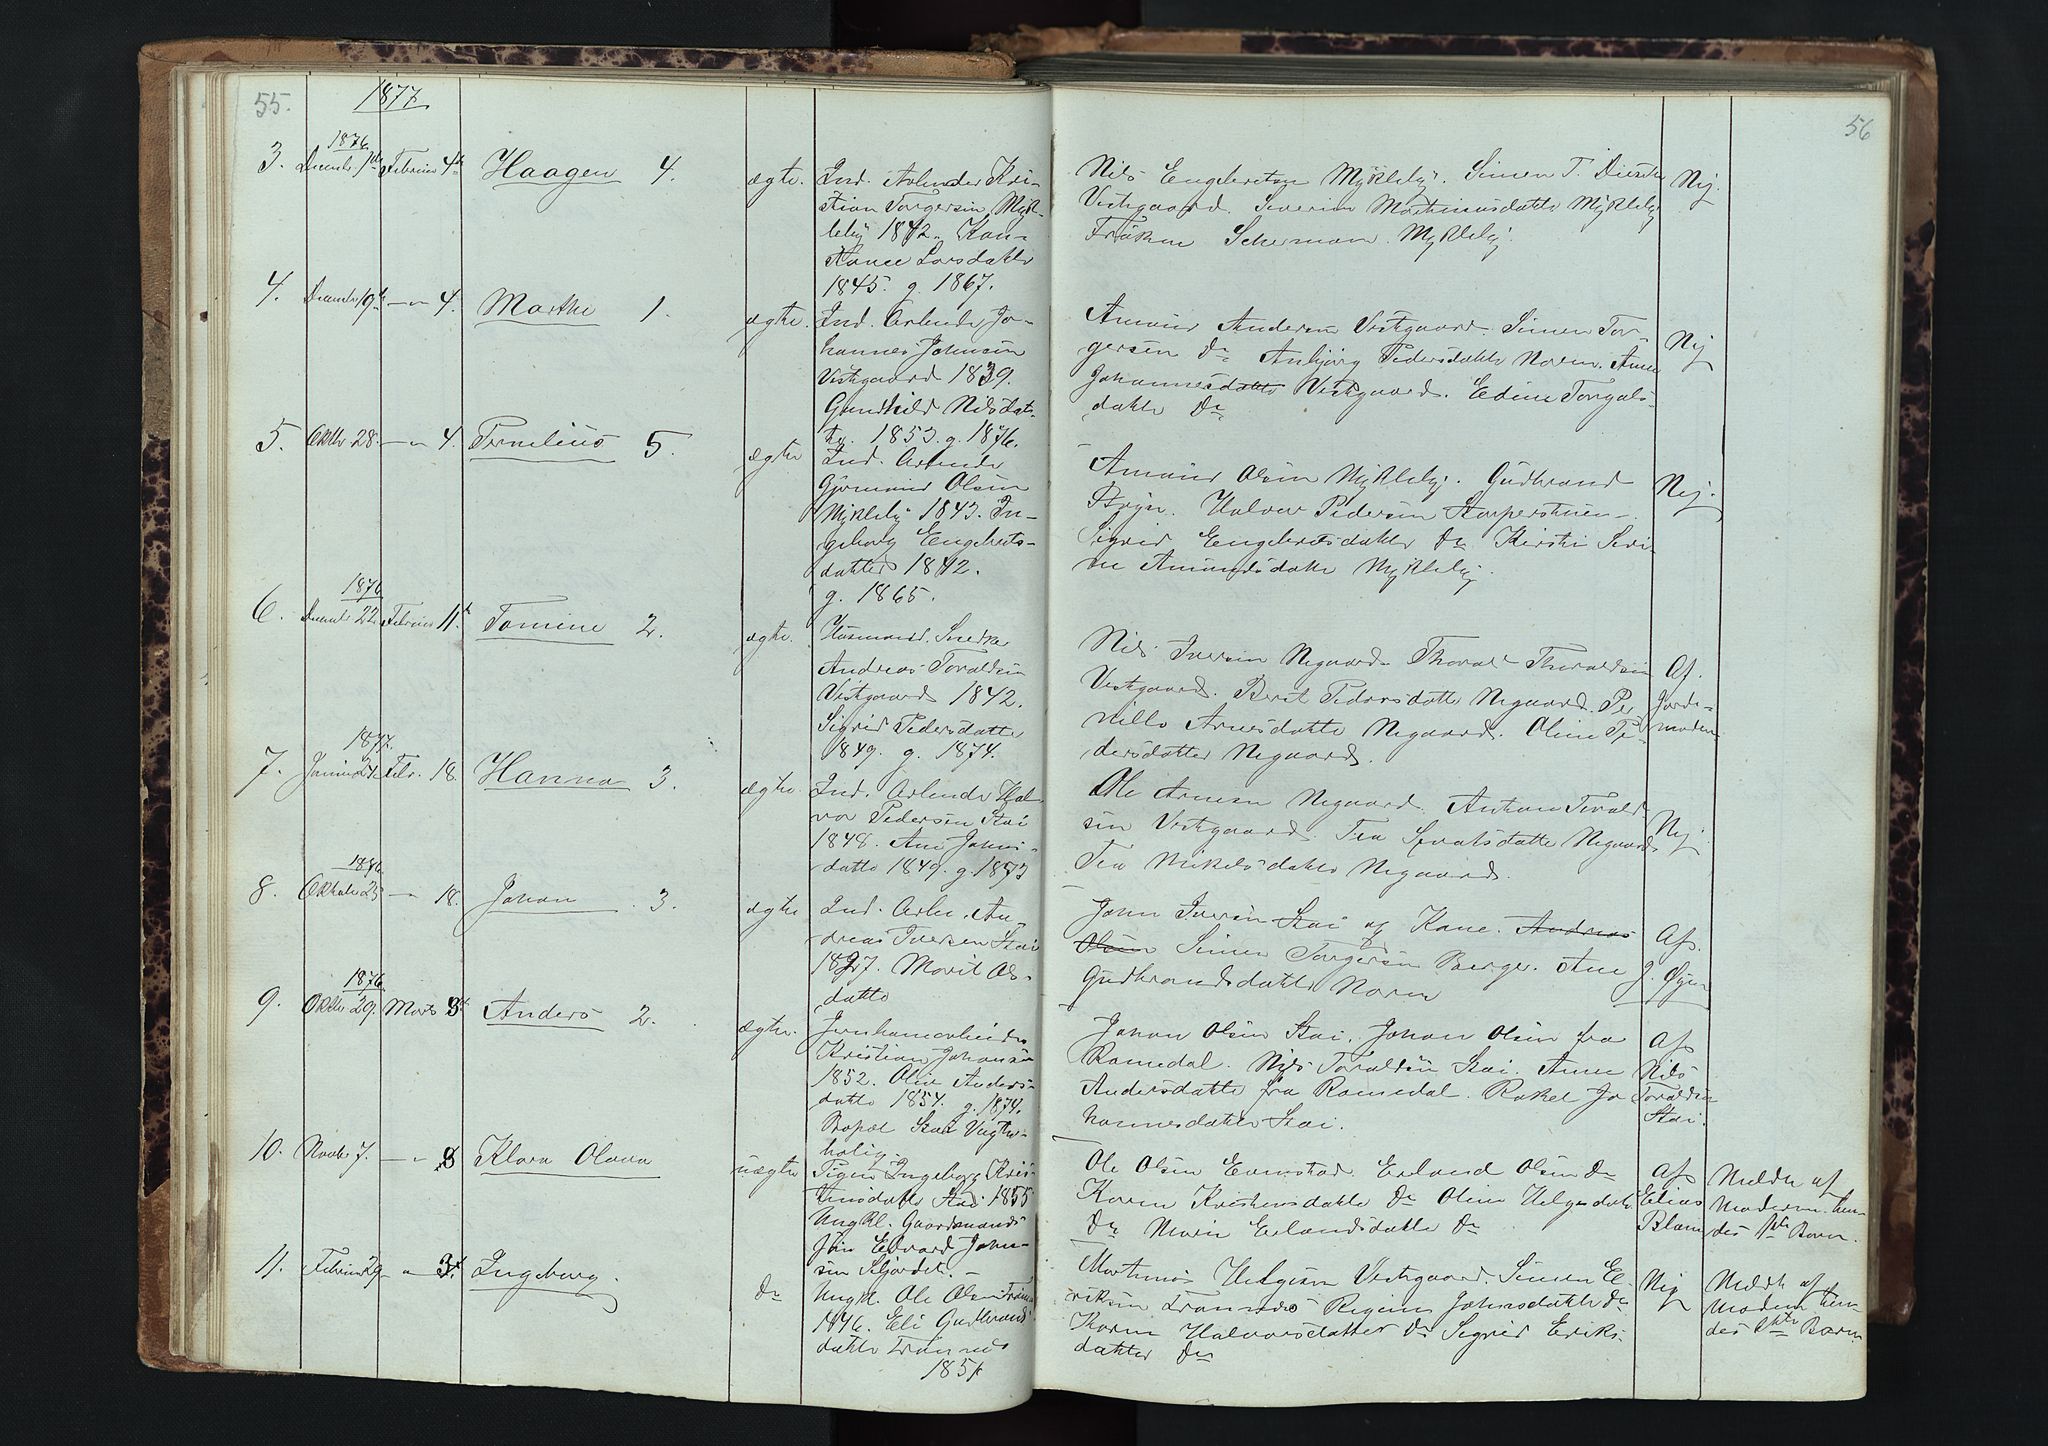 55.
1877
3. 1876 Decembr 1ste Februar 4de Haagen 4. ægte. Ind. Arbeider Kri-
stian Torgersen Mykleby
1842.
Larsdatter
1845. g. 1867.
4. Decembr 19de — " 4. Marthe 1. ægte. Ind. Arbeider Jo-
hannes Johnsen
Vestgaard 1839.
Gunhild Nilsdat-
ter. 1853. g. 1876.
5. Oktbr 28. — " 4. Pernelius 5. ægte Ind. Arbeider
Gjermund Olsen
Mykleby 1843. In-
geborg Engebrets-
datter 1842.
g. 1865.
6. 1876 Decembr 22. Februar 11te Tomine 2. ægte. Husmand. Snedker
Andreas Toraldsen
Vestgaard 1842.
Sigrid Pedersdatter
1849. g. 1874.
7. 1877. Januar 21. Febr. 18. Hanna 3. ægte. Ind. Arbeider Hal-
vor Pedersen Stai
1848. Ane Johns-
datter 1849. g. 1873
8. 1876. Oktober 25 — " 18. Johan 3. ægte Ind. Arbei. An-
dreas Iversen Stai
Marit Ols-
datter
9. 1876. Oktbr 29. Marts 3. Anders 2. ægte. Jernbanearbeider
Kristian Johansen
1852. Oline Anders-
datter 1854. g. 1874.
Bopæl Stai Vogter-
bolig.
10. Novbr 7. — " Klara Olava uægte Pigen Ingeborg Kris-
tensdatter Stai 1855
Ungkl. Gaardmands-
søn Edvard John-
sen
11. Februar 29 — " Ingeborg. Do Ungkl. Ole Olsen Trønnes
1846. Eli Gudbrands
datter Trønnes
1851
56
Nils Engebretsen Mykleby. Simen T.
Vestgaard. Severine Martinusdatter Mykleby
Frøken Scherman. Mykleby. Nej.
Amund Andersen Vestgaard. Simen Tor-
gersen Do. Anbjørg Pedersdatter Noren. Anne
Johannesdatter Vestgaard. Edine Torgals-
datter Do Nej
Amund Olsen Mykleby. Gudbrand
Halvor Pedersen
Sigrid Engebretsdatter Do Kirsti Seri-
ne Amundsdatter Mykleby. Nej.
Nils Iversen Negaard. Thorald Thoraldsen
Vestgaard. Berit Pedersdatter Negaard. Per
nille Arnesdatter Negaard. Oline Pe-
dersdatter Negaard. Af. Jorde-
moderen
Ole Arnesen Negaard. Anton Torald-
sen Vestgaard. Tea Negaard
Tea Mikelsdatter Negaard. Nej.
John Iversen Stai og Kone. Andreas
Olsen Simen Torgersen Berger. Ane
Gudbrandsdatter Noren Af. J. Øyen
Johan Olsen Stai. Johan Olsen fra
Romedal. Nils Toraldsen Stai. Anne
Andersdatter fra Romedal. Rakel Jo
hannesdatter Stai. Af Nils Toraldsen Stai.
Ole Olsen Evenstad. Erland Olsen Do
Karen Kristensdatter Do Oline Helgesdatter
Do Marie Erlandsdatter Do Af Elias Meldt af
Moderen. hen-
des 1ste Barn.
Martinus Helgesen Vestgaard. Simen E-
riksen Trønnes Regine Johnsdatter Do
Karen Halvorsdatter Do Sigrid Eriks-
datter Do Nej Meldt af
Moderen hen-
des Barn